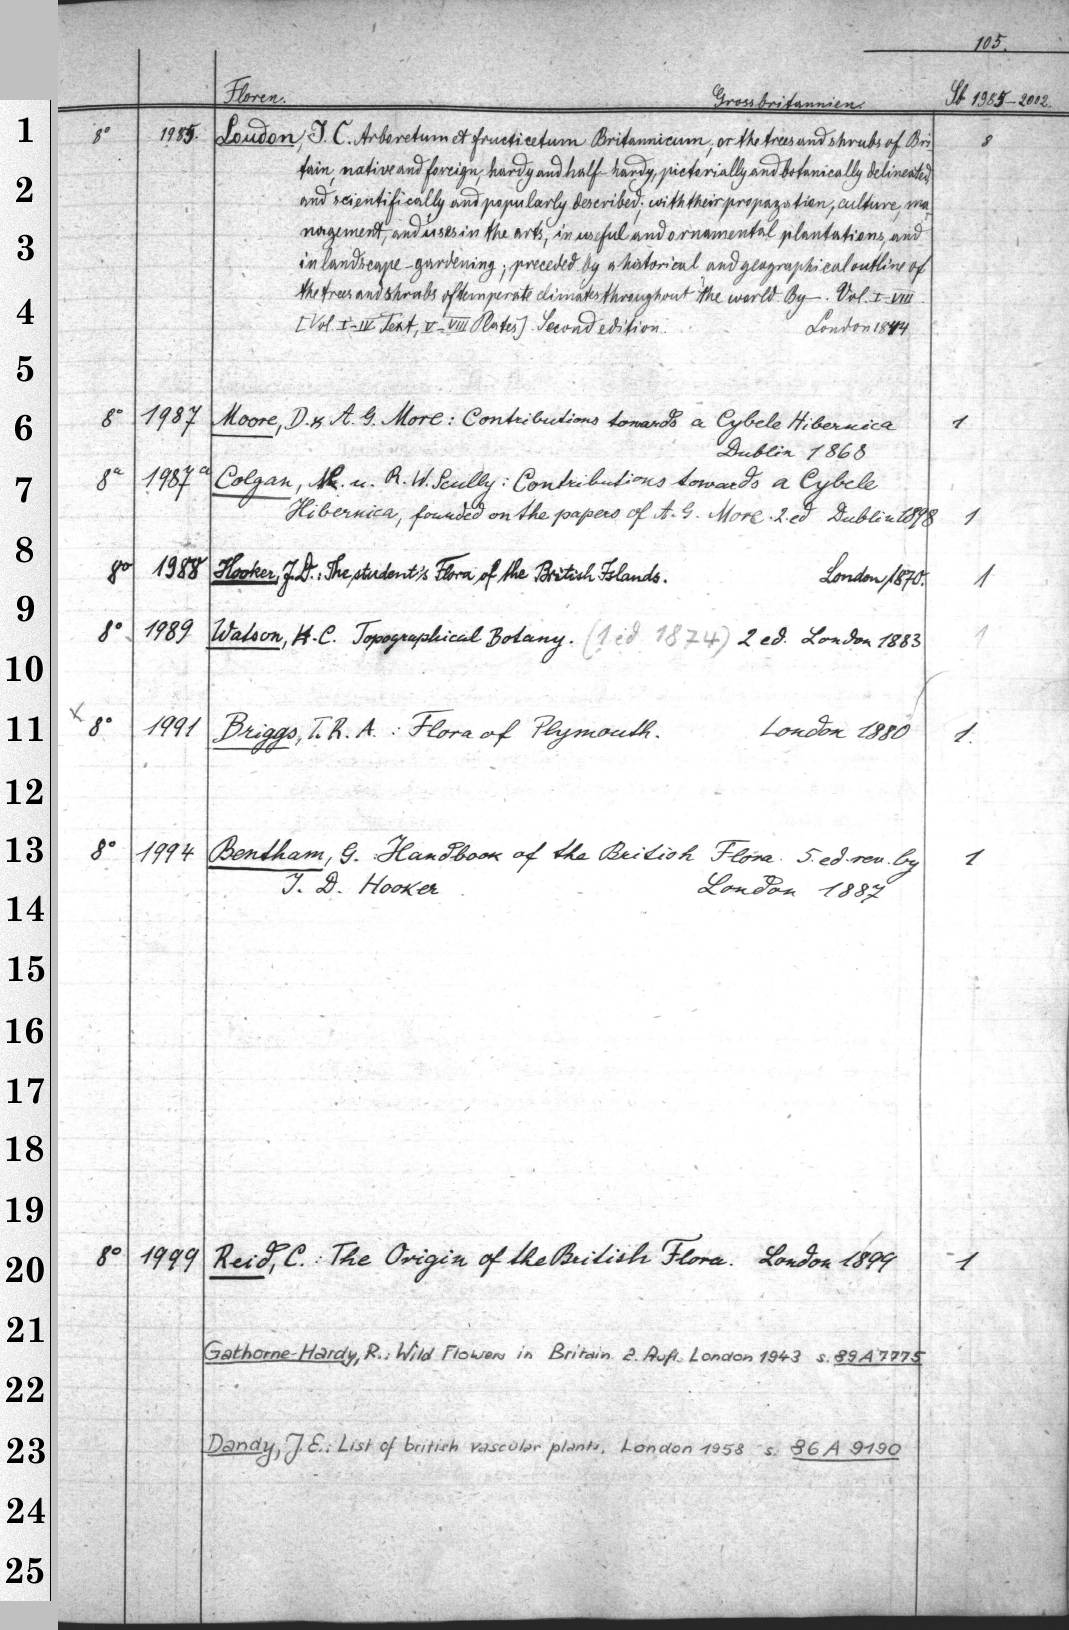 105.
Floren. Grossbritannien. Sb 1985-2002.
1 8° 1985. Loudon, J. C. Arboretum et fructicetum Britannicum, or the trees and shrubs of Bri- 8
tain, native and foreign, hardy and half-hardy, pictorially and botanically delineated,
2 and scientifically and popularly described; with their propagation, culture, ma-
3 nagement, and uses in the arts, in useful and ornamental plantations, and
in landscape-gardening; preceded by a historical and geographical outline of
4 the trees and shrubs of temperate climates throughout the world By—. Vol. I-VIII
[Vol. I-IV Text, V-VIII Plates] Second edition. London 1844
5
6 8° 1987 Moore, D. & A. G. More: Contributions towards a Cybele Hibernica 1
Dublin 1868
7 8° 1987a Colgan, N. u. R. W. Scully: Contributions towards a Cybele
Hibernica, founded on the papers of A. G. More. 2. ed Dublin 1898 1
8
8° 1988 Hooker, J. D.: The student's Flora of the British Islands. London, 1870. 1
9
8° 1989 Watson, H. C. Topographical Botany. (1 ed 1874) 2 ed. London 1883 1
10
11 x 8° 1991 Briggs, T. R. A.: Flora of Plymouth. London 1880 1.
12
13 8° 1994 Bentham, G. Handbook of the British Flora. 5. ed. rev. by 1
J. D. Hooker London 1887
14
15
16
17
18
19
20 8° 1999 Reid, C.: The Origin of the British Flora. London 1899 1
21
Gathorne-Hardy, R.: Wild Flowers in Britain. 2. Aufl. London 1943 s. 89 A 7775
22
23 Dandy, J. E.: List of british vascular plants. London 1958 s. 86 A 9190
24
25